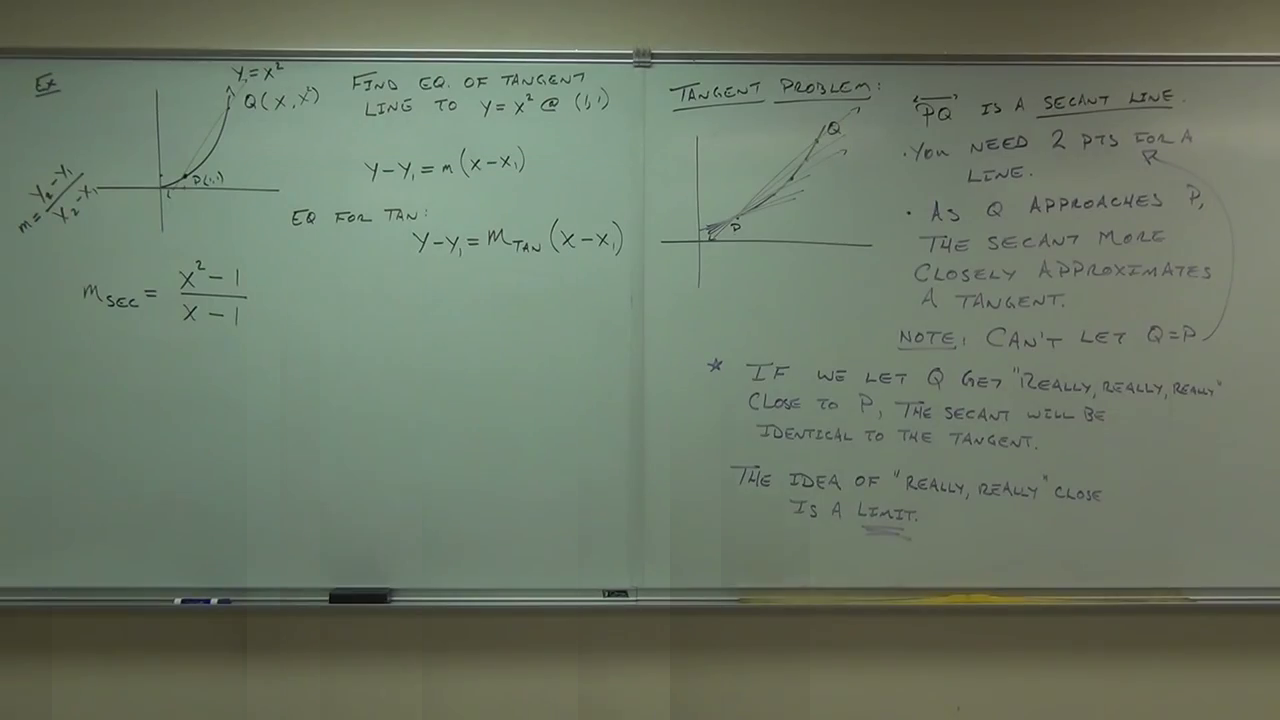 Ex
Y=X²
Q(X, X²)
P(1,1)
m = Y₂-Y₁ / X₂-X₁
FIND EQ. OF TANGENT
LINE TO Y=X² @ (1,1)
Y-Y₁=m(X-X₁)
EQ FOR TAN:
Y-Y₁=m_TAN(X-X₁)
m_SEC = X²-1 / X-1
TANGENT PROBLEM:
Q
P
PQ IS A SECANT LINE.
· YOU NEED 2 PTS FOR A
LINE.
· AS Q APPROACHES P,
THE SECANT MORE
CLOSELY APPROXIMATES
A TANGENT.
NOTE: CAN'T LET Q=P
* IF WE LET Q GET "REALLY, REALLY, REALLY"
CLOSE TO P, THE SECANT WILL BE
IDENTICAL TO THE TANGENT.
THE IDEA OF "REALLY, REALLY" CLOSE
IS A LIMIT.